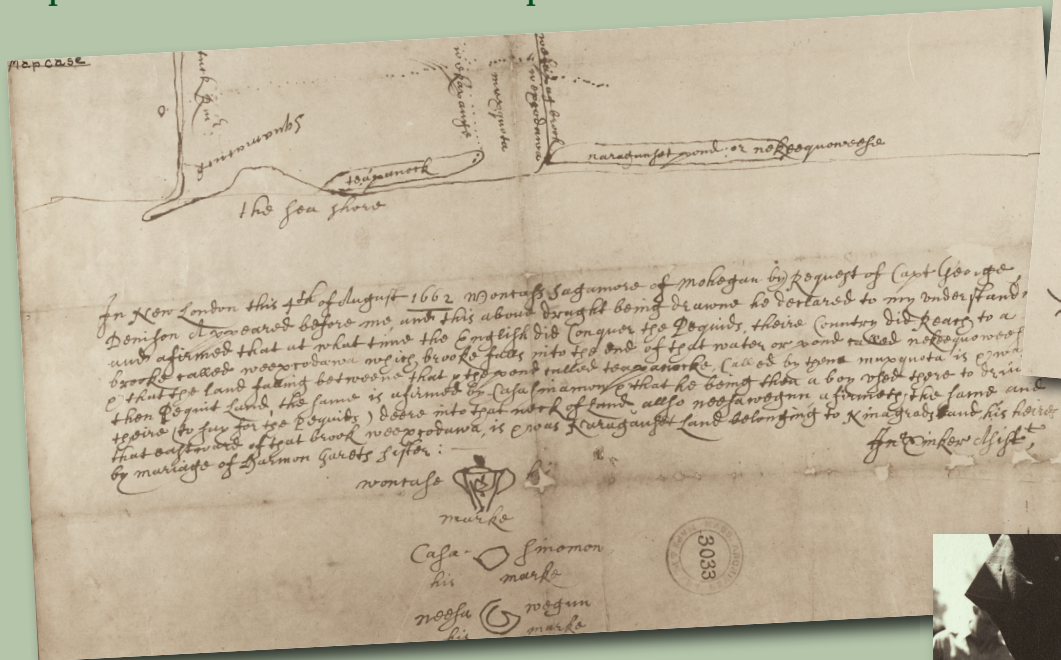 mapcase
squamacut
wekapauge
muxquota
weexcodawa
teapanock
naragunset pond or nekeequoweese
the sea shore
In New London this 4th of August 1662 Wontass Sagamore of Mohegan by Request of Capt George
Denison Appeared before me, and this above draght being drawne he declared to my understand
and afirmed that at what time the English did Conquer the Pequids, theire Country did Reach to a
brooke called weexcodawa which brooke falls into the end of that water or pond called nekeequowees
that the land falling betweene that the pond called teapanocke, Called by them muxquota is
then Pequit Land, the same is afirmed by Casasinamon that he being then a boy used there to driv
theire (to say for the Pequids) deere into that neck of Land allso neesawegun afirmeth the same and
that eastward of that brook weexcodawa, is was Naragansett Land belonging to Ninagrads and his heires
by mariage of Harmon Garets sister:
wontase
marke
Casa sinomon
his marke
neesa wegun
his marke
3033